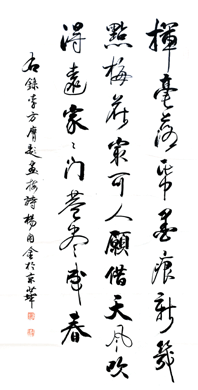 揮毫落帋墨痕新幾
點梅花最可人願借天風吹
得遠家々門巷尽成春
右錄李方膺題画梅詩楊国金於京華